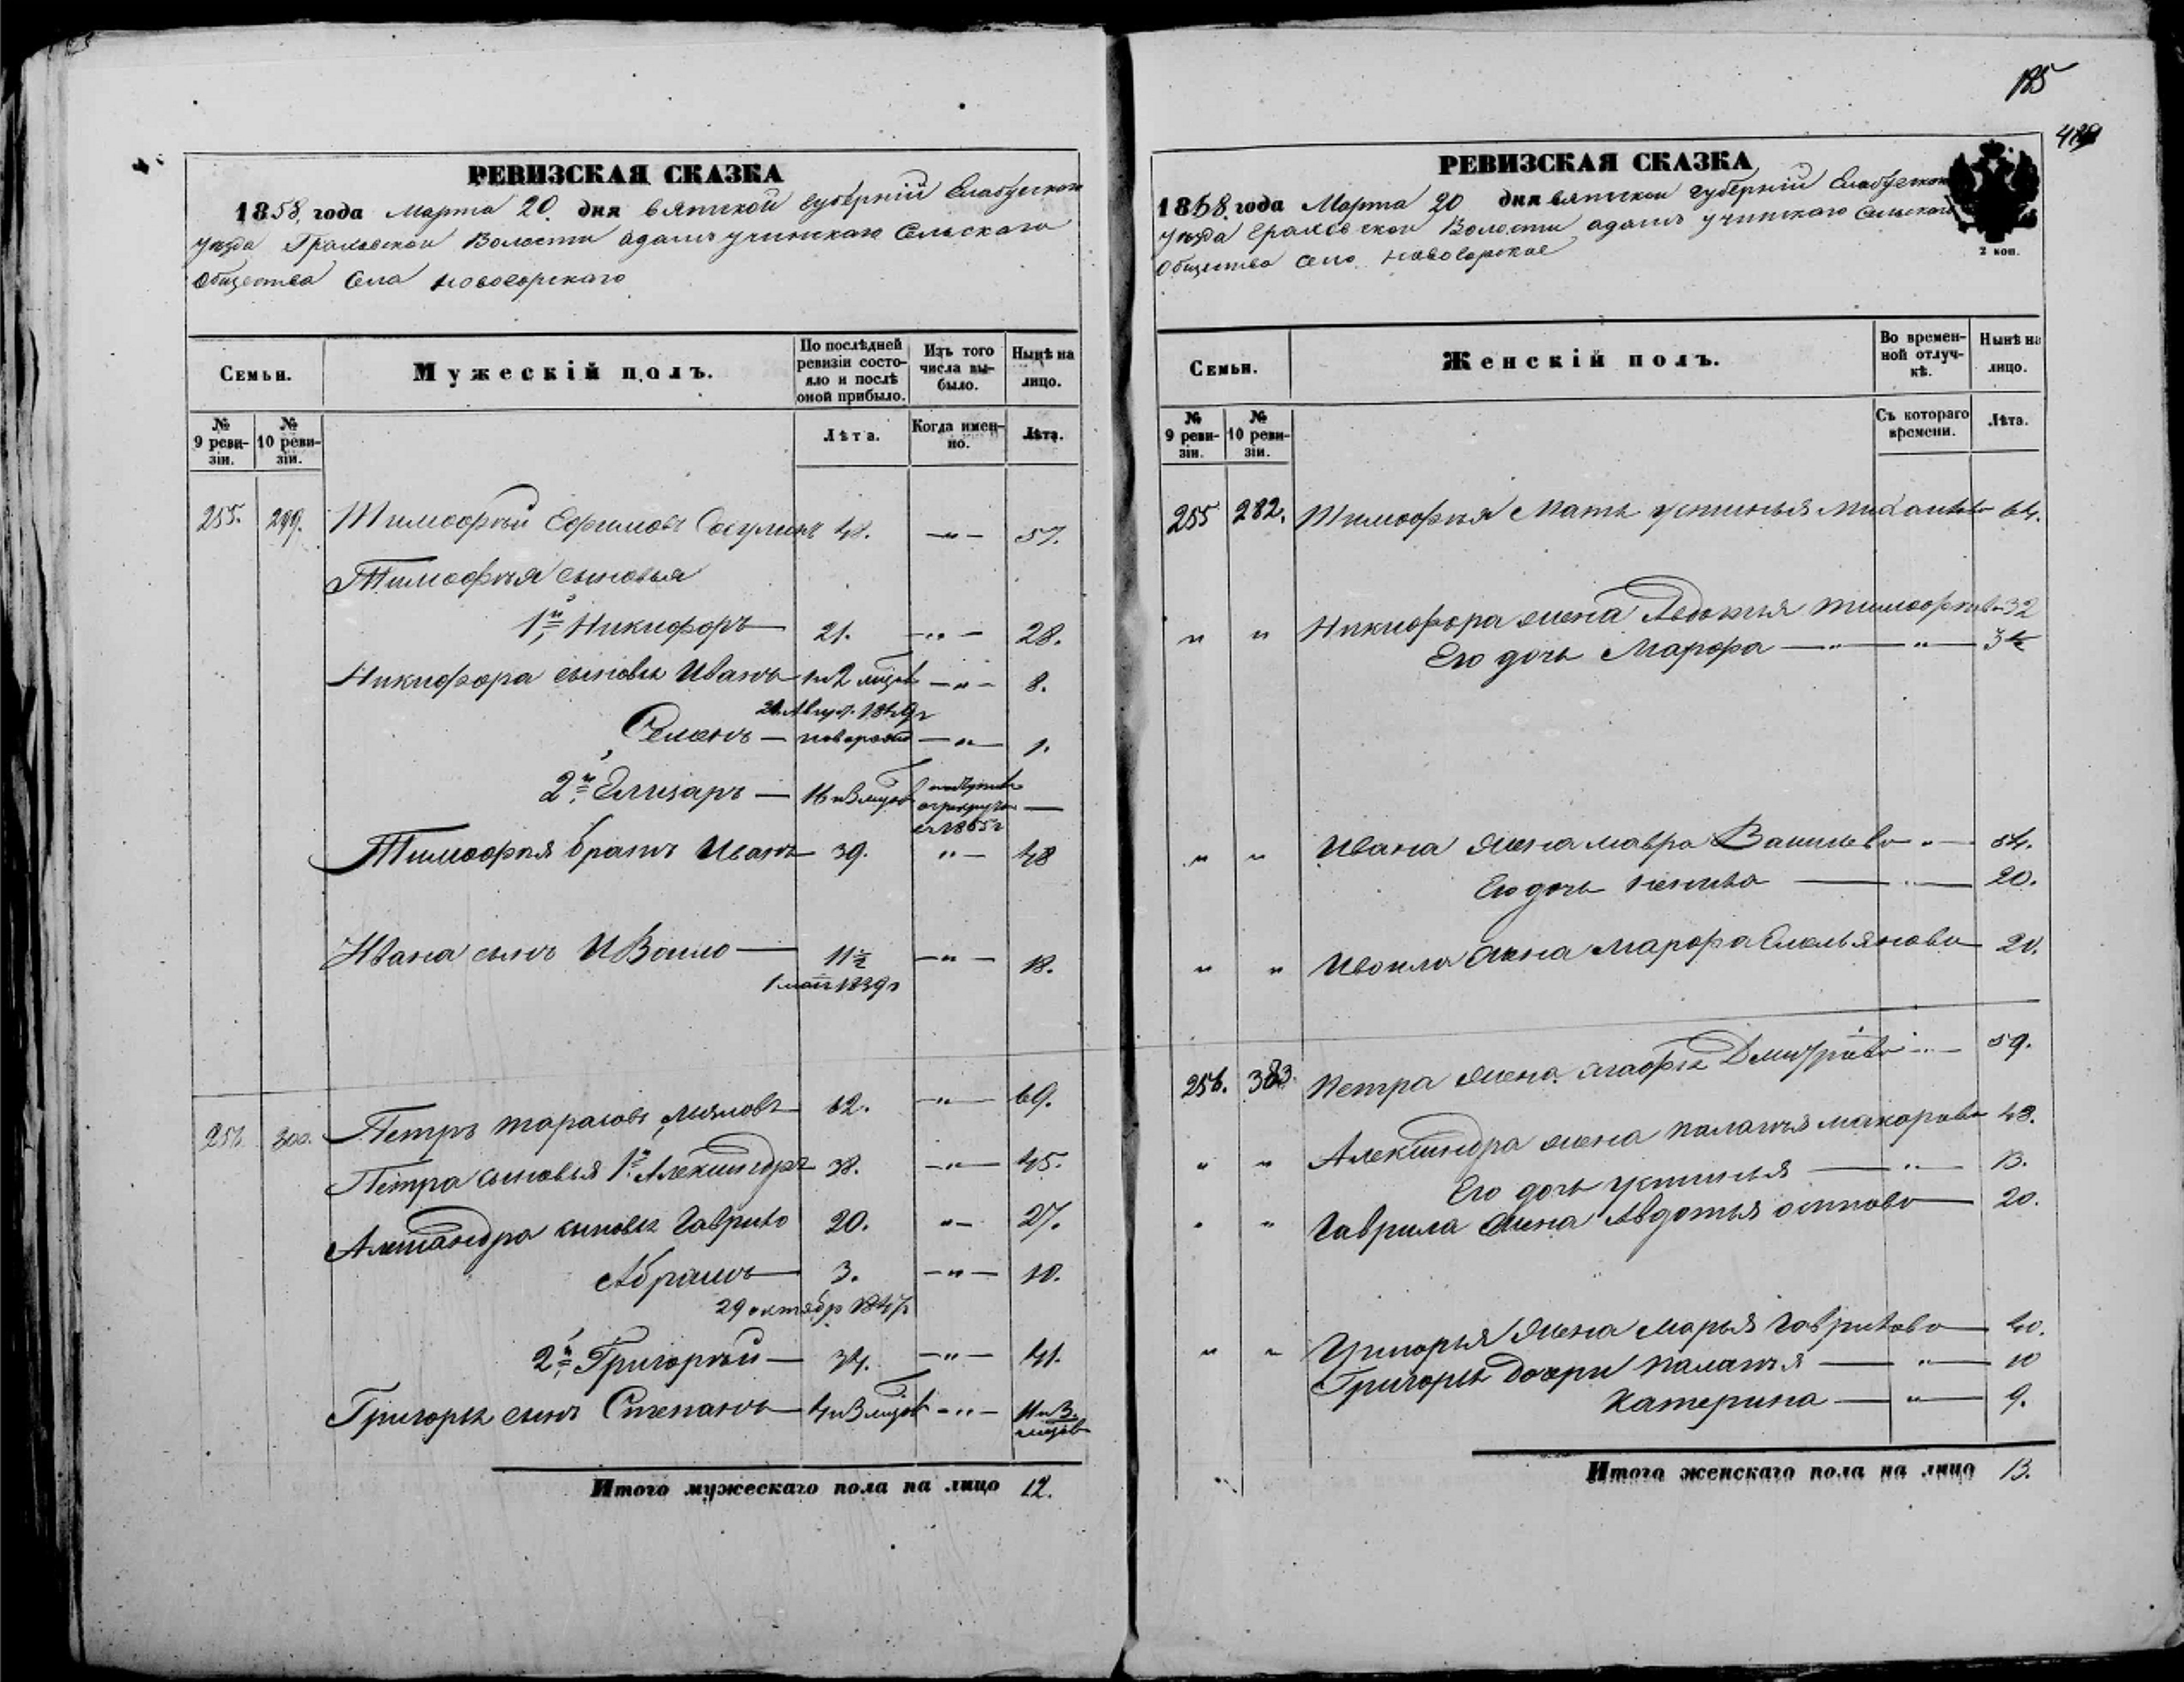 185
РЕВИЗСКАЯ СКАЗКА
1858, года Марта 20. дня Вятской губерніи Елабугскаго
уезда Граховской Волости Адамъ учинскаго Сельскаго
Общества Села Новогорскаго
Семьи.
Мужескій полъ.
По послѣдней ревизіи состояло и послѣ оной прибыло.
Изъ того числа выбыло.
Нынѣ на лицо.
№ 9 ревизіи.
№ 10 ревизіи.
Лѣта.
Когда именно.
Лѣта.
255. 299. Тимофѣй Ефимовъ 48. —"— 57.
Тимофѣя сыновья
1й Никифоръ — 21. —"— 28.
Никифора сыновья Иванъ 1 и 2 —"— 8.
1849г
Семенъ — —"— 1.
2й Елизаръ — —
Тимофѣя братъ Иванъ 39. "— 48
Ивана сынъ Ивоило — 11½ —"— 18.
1 1839г
256 300. Петръ Тарасовъ 62. —"— 69.
Петра сыновья 1й Александръ 38. —"— 45.
Александра сыновья Гаврило 20. "— 27.
Абрамъ — 3. —"— 10.
29 октябр 1847г
2й Григорѣй — 34. —"— 41.
Григорья сынъ Степанъ 4 и 3 —"— 11 и 3.
Итого мужескаго пола на лицо 12.
РЕВИЗСКАЯ СКАЗКА
1858. года Марта 20 дня Вятской губерніи Елабугскаго
уезда Граховской Волости Адамъ учинскаго Сельскаго
Общества Село Новогорское
2 коп.
Семьи.
Женскій полъ.
Во временной отлучкѣ.
Нынѣ на лицо.
№ 9 ревизіи.
№ 10 ревизіи.
Съ котораго времени.
Лѣта.
255 282. Тимофѣя Мать Устинья 64.
" " Никифора жена Авдотья Тимофѣева 32
Его дочь Марфа —"—"—
" " Ивана жена Мавра Васильева "—
Его дочь — 20.
" " Ивоила жена Марфа Емельянова 20.
256. 383. Петра жена Агафья Дмитріева — 59.
" " Александра жена Палагѣя Макарова 43.
Его дочь Устинья —"— 13.
" " Гаврила жена Авдотья Осипова — 20.
" " Григорья жена Марья Гаврилова — 40.
Григорья дочери Палагѣя —"— 10
Катерина —"— 9.
Итого женскаго пола на лицо 13.